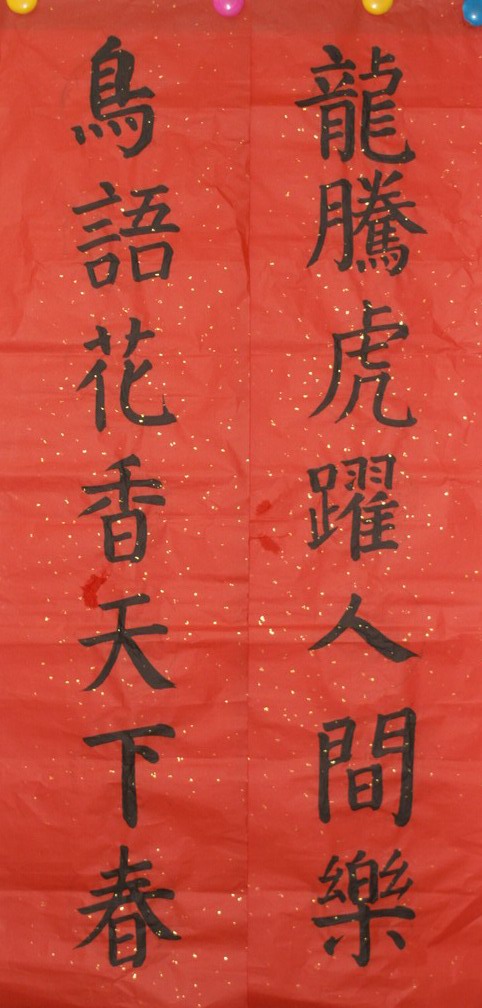 龍騰虎躍人間樂
鳥語花香天下春